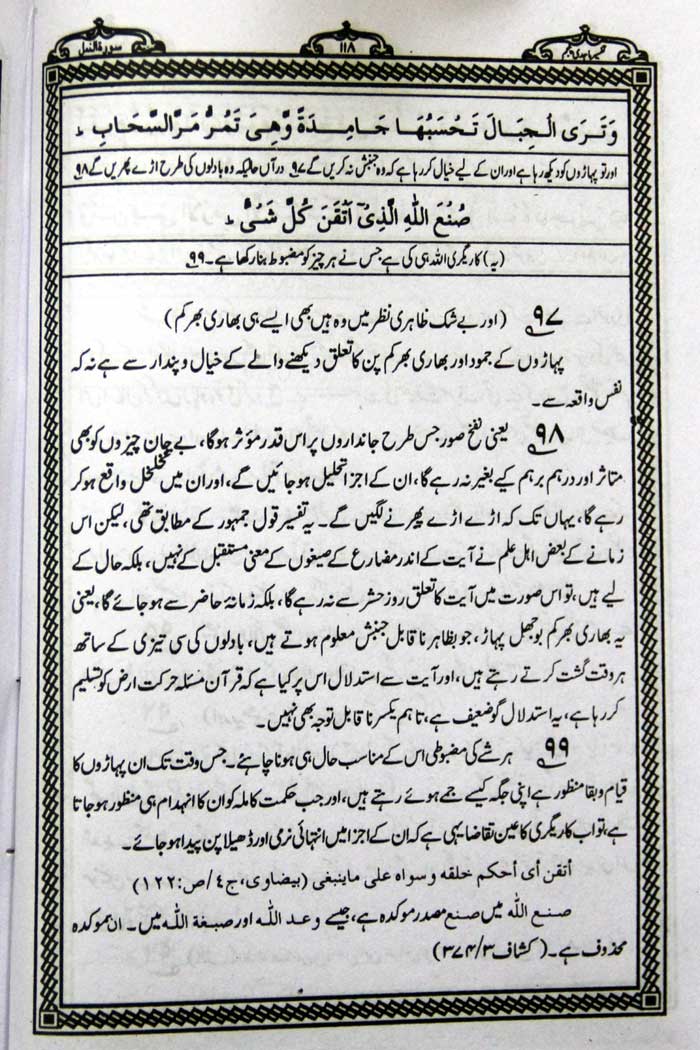 سورة النمل ۱۱۸ تفسیر ماجدی پنجم
وَتَرَى الْجِبَالَ تَحْسَبُهَا جَامِدَةً وَّهِىَ تَمُرُّ مَرَّ السَّحَابِ ط
اور تو پہاڑوں کو دیکھ رہا ہے اور ان کے لیے خیال کر رہا ہے کہ وہ جنبش نہ کریں گے ۹۷ درآں حالیکہ وہ بادلوں کی طرح اڑے پھریں گے ۹۸
صُنْعَ اللهِ الَّذِىْٓ اَتْقَنَ كُلَّ شَىْءٍ ط
(یہ) کاریگری اللہ ہی کی ہے جس نے ہر چیز کو مضبوط بنا رکھا ہے۔ ۹۹
۹۷ (اور بے شک ظاہری نظر میں وہ ہیں بھی ایسے ہی بھاری بھرکم)
پہاڑوں کے جمود اور بھاری بھرکم پن کا تعلق دیکھنے والے کے خیال و پندار سے ہے نہ کہ
نفس واقعہ سے۔
۹۸ یعنی نفخ صور جس طرح جانداروں پر اس قدر مؤثر ہوگا، بے جان چیزوں کو بھی
متاثر اور درہم برہم کیے بغیر نہ رہے گا، ان کے اجزا تحلیل ہو جائیں گے، اور ان میں تخلخل واقع ہو کر
رہے گا، یہاں تک کہ اڑے اڑے پھرنے لگیں گے۔ یہ تفسیر قول جمہور کے مطابق تھی، لیکن اس
زمانے کے بعض اہل علم نے آیت کے اندر مضارع کے صیغوں کے معنی مستقبل کے نہیں، بلکہ حال کے
لیے ہیں، تو اس صورت میں آیت کا تعلق روز حشر سے نہ رہے گا، بلکہ زمانۂ حاضر سے ہو جائے گا، یعنی
یہ بھاری بھرکم بوجھل پہاڑ، جو بظاہر ناقابل جنبش معلوم ہوتے ہیں، بادلوں کی سی تیزی کے ساتھ
ہر وقت گشت کرتے رہتے ہیں، اور آیت سے استدلال اس پر کیا ہے کہ قرآن مسئلہ حرکت ارض کو تسلیم
کر رہا ہے، یہ استدلال گو ضعیف ہے، تاہم یکسر ناقابل توجہ بھی نہیں۔
۹۹ ہر شے کی مضبوطی اس کے مناسب حال ہی ہونا چاہئے۔ جس وقت تک ان پہاڑوں کا
قیام و بقا منظور ہے اپنی جگہ کیسے جمے ہوئے رہتے ہیں، اور جب حکمت کاملہ کو ان کا انہدام ہی منظور ہو جاتا
ہے، تو اب کاریگری کا عین تقاضا یہی ہے کہ ان کے اجزا میں انتہائی نرمی اور ڈھیلا پن پیدا ہو جائے۔
أتقن أى أحكم خلقه وسواه على ماينبغى (بيضاوى، ج٤/ص:١٢٢)
صنع اللہ میں صنع مصدر موکدہ ہے، جیسے وعد اللہ اور صبغة اللہ میں۔ ان ہموکدہ
محذوف ہے۔ (کشاف ۳/۳۷۴)